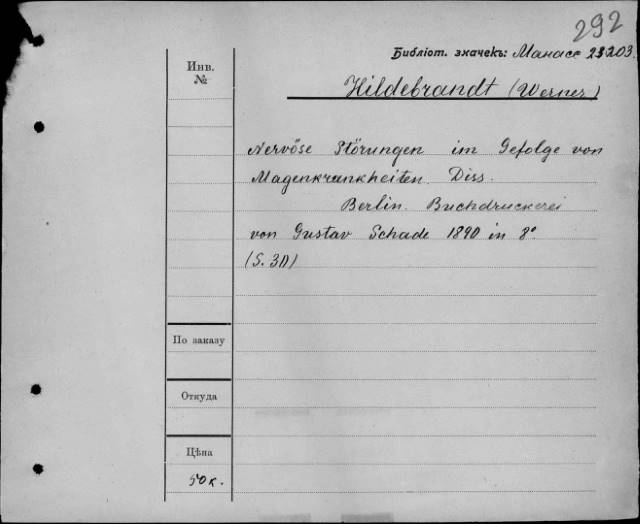 292
Библіот. значекъ: Манасс 23203.
Инв.
№
Hildebrandt (Werner)
Nervöse Störungen im Gefolge von
Magenkrankheiten. Diss.
Berlin. Buchdruckerei
von Gustav Schade 1890 in 8°
(S. 31)
По заказу
Откуда
Цѣна
50 к.